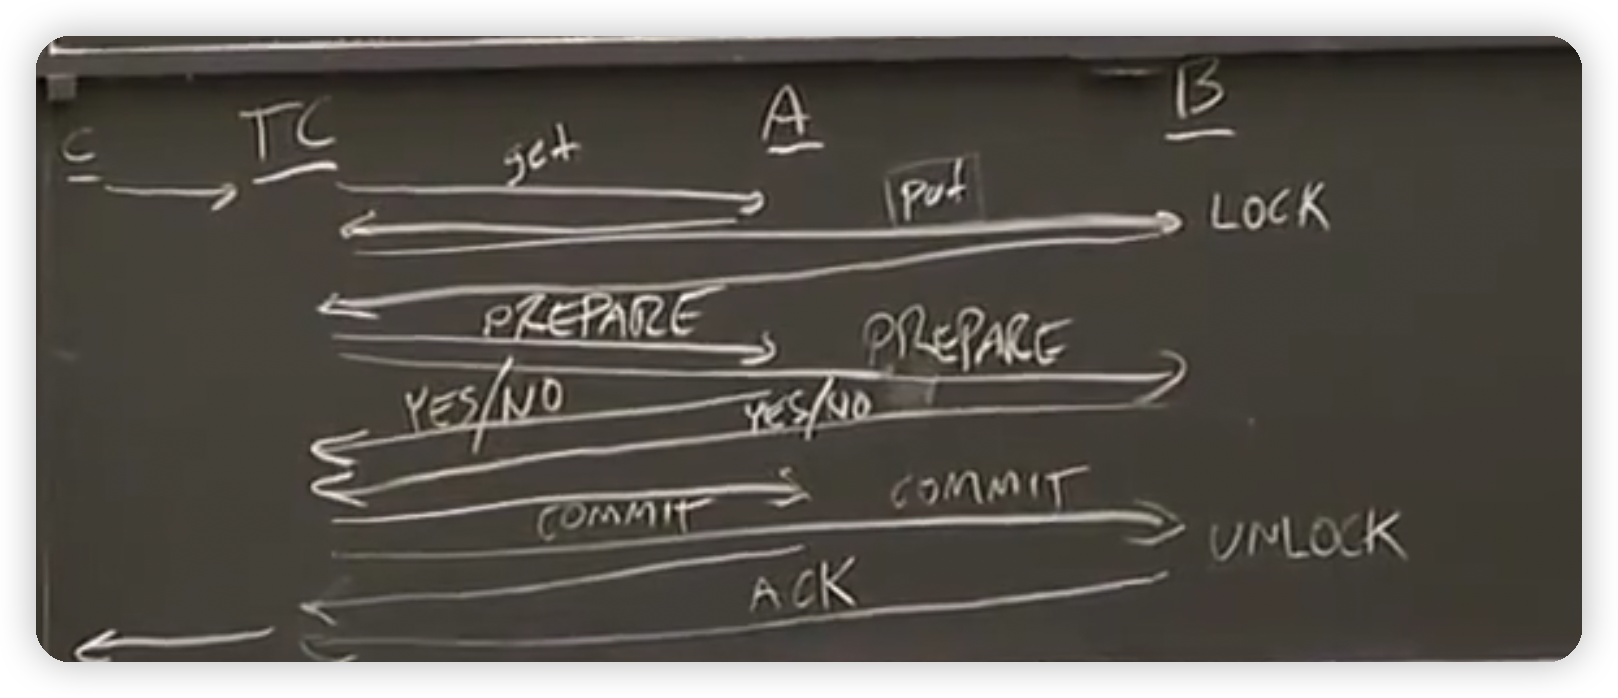 C TC A B
get
put LOCK
PREPARE PREPARE
YES/NO YES/NO
COMMIT COMMIT
UNLOCK
ACK